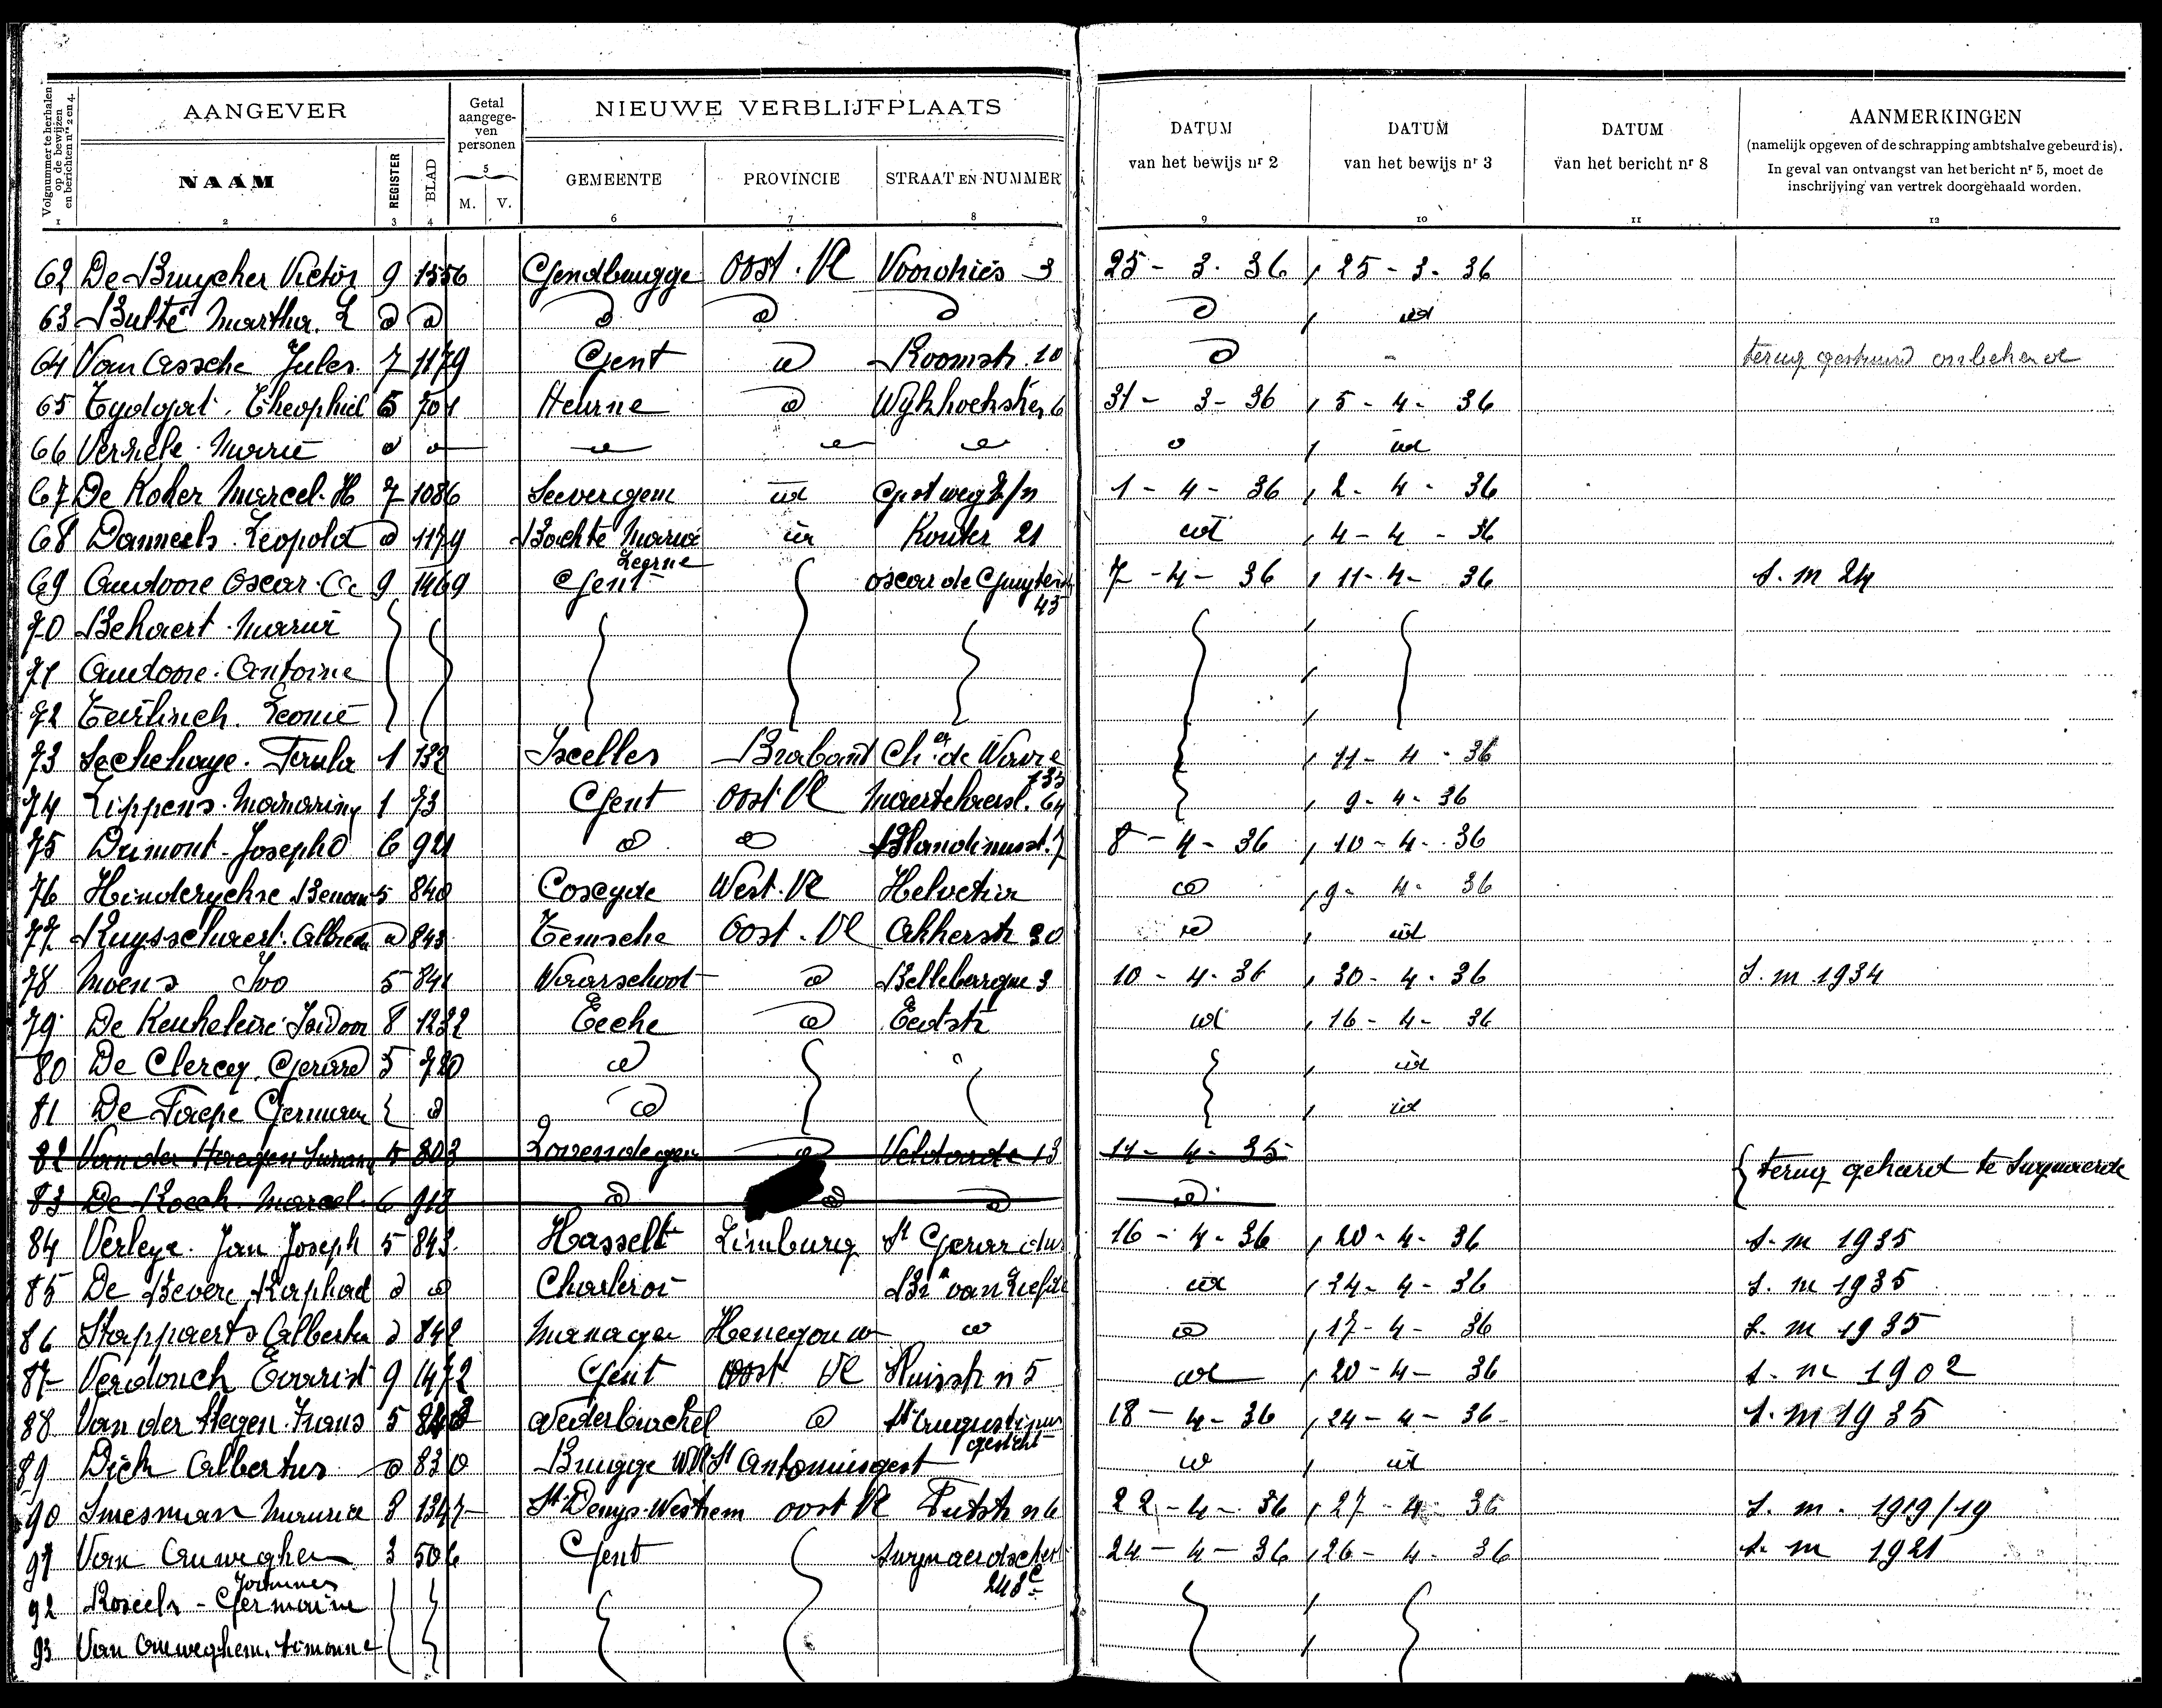 Volgnummer te herhalen op de bewijzen en berichten nrs 2 en 4.
AANGEVER
Getal aangegeven personen
NIEUWE VERBLIJFPLAATS
DATUM van het bewijs nr 2
DATUM van het bewijs nr 3
DATUM van het bericht nr 8
AANMERKINGEN
(namelijk opgeven of de schrapping ambtshalve gebeurd is).
In geval van ontvangst van het bericht nr 5, moet de inschrijving van vertrek doorgehaald worden.
NAAM REGISTER BLAD M. V. GEMEENTE PROVINCIE STRAAT EN NUMMER
1 2 3 4 5 6 7 8 9 10 11 12
62 De Bruycker Victor 9 1556 Gendbrugge Oost. Vl Voordries 3 25 - 3 - 36 25 - 3 - 36
63 Butte Martha
64 Van Assche Jules 7 1179 Gent Roomstr. 10 terug gestuurd onbekend
65 Theophiel 5 701 Heurne 31 - 3 - 36 5 - 4 - 36
66 Marie id
67 De Koker Marcel. H 7 1086 Seevergem id 1 - 4 - 36 2 - 4 - 36
68 Danneels Leopold 1179 Bachte Maria Leerne id Kouter 21 id 4 - 4 - 36
69 Audoore Oscar 9 1469 Gent 43 7 - 4 - 36 11 - 4 - 36 S. m 24
70 Bekaert Maria
71 Audoore Antoine
72 Leonie
73 Sechehaye. Paula 1 132 Ixelles Brabant Ch de Wavre 11 - 4 - 36
74 Lippens 1 73 Gent Oost Vl 64 9 - 4 - 36
75 Dumont Joseph 6 921 Blandinusst. 7 8 - 4 - 36 10 - 4 - 36
76 Hinderyckse 5 840 Coxyde West. Vl Helvetia 9 - 4 - 36
77 Ruysschaert 843 Temsche Oost. Vl Akkerstr 30 id
78 Moens Ivo 5 841 Waarschoot Bellebargue 3 10 - 4 - 36 30 - 4 - 36 S. m 1934
79 De Keukeleire Isidoor 8 1232 Eecke id 16 - 4 - 36
80 De Clercq Gerard 5 720 id
81 De Paepe German id
82 5 803 Lovendegem 13 11 - 4 - 35 terug gekeerd te Swynaerde
83 De Kock Marcel 6 918
84 Verleye. Jan Joseph 5 843 Hasselt Limburg St Gerardus 16 - 4 - 36 20 - 4 - 36 S. m 1935
85 De Bevere Raphael Charleroi id 24 - 4 - 36 S. m 1935
86 Stappaerts Albertus 842 Manage Henegouw 17 - 4 - 36 S. m 1935
87 Verdonck Evarist 9 1472 Gent Oost Vl n 5 id 20 - 4 - 36 S. m 1902
88 Van der Hegen Frans 5 Nederbrackel St Augustinus gesticht 18 - 4 - 36 24 - 4 - 36 S. m 1935
89 Dick Albertus 830 Brugge W Vl St Antoniusgest id
90 Smesman Maurice 8 1347 St Denys-Westrem Oost Vl Putstr n 6 22 - 4 - 36 27 - 4 - 36 S. m. 1919/19
91 Van Auweghem Joannes 3 506 Gent 248 24 - 4 - 36 26 - 4 - 36 S. m 1921
92 Roseels - Germaine
93 Van Auweghem. Simonne